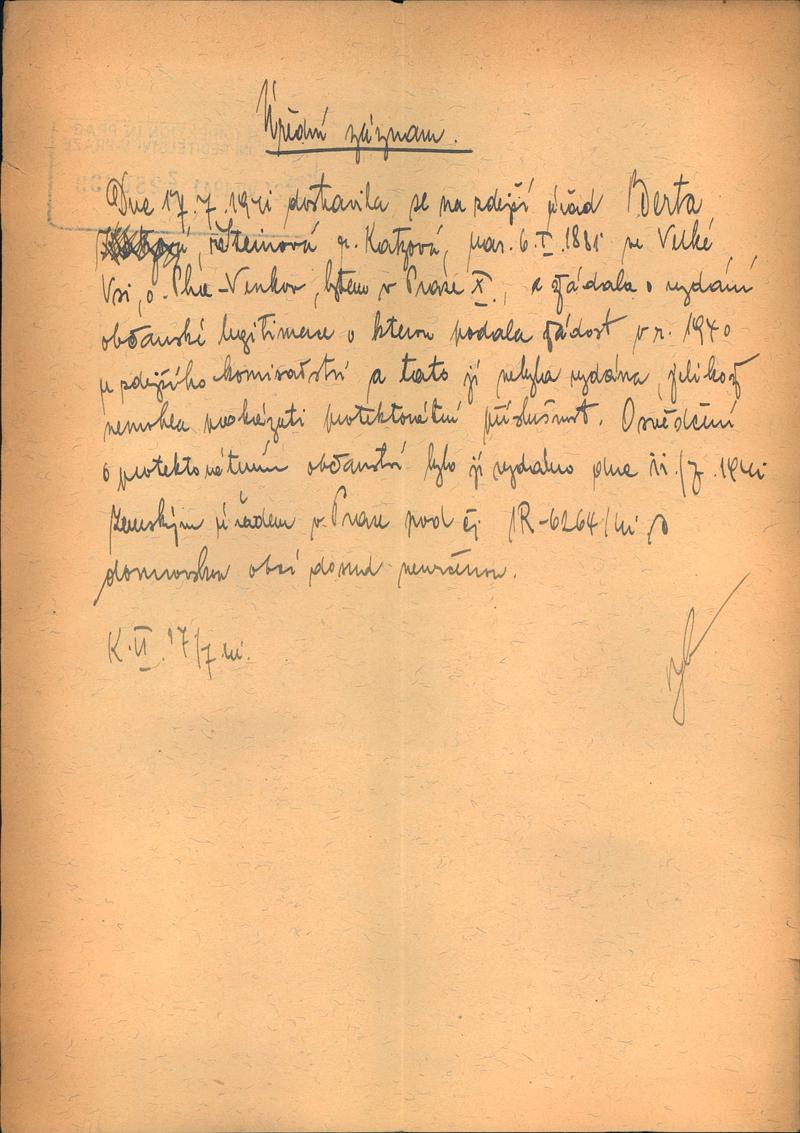 Úřední záznam.
Dne 17.7.1941 dostavila se na zdejší úřad Berta
r. Katzová, nar. 6.I.1881 ve Velké
Vsi, o. Praha-Venkov, bytem v Praze X., a žádala o vydání
občanské legitimace o kterou podala žádost v r. 1940
u zdejšího komisařství a tato jí nebyla vydána, jelikož
nemohla prokázati protektorátní příslušnost. Osvědčení
o protektorátním občanství bylo jí vydáno dne 11./7.1941
Zemským úřadem v Praze pod čj 1R-6264/41 s
domovskou obcí dosud neurčenou.
K.II. 17/7 41.